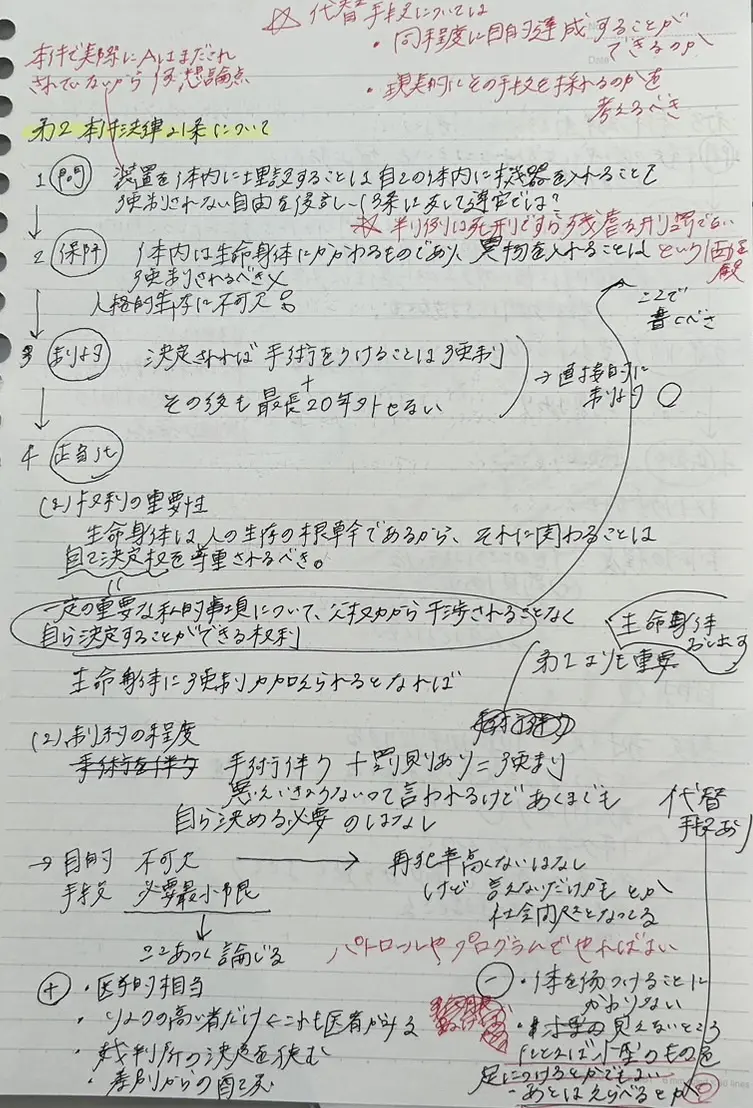 ☆ 代替手段については
・同程度に目的達成することが
できるのか
・現実的にその手段を採れるのかを
考えるべき
本件で実際にAはまだされ
されていないから仮想論点
第2 本件法律21条について
1 問 装置を体内に埋設することは自己の体内に機器を入れることを
強制されない自由を侵害し13条に反して違憲では?
☆ 判例は死刑ですら残虐な刑罰でない
という
2 保障 体内は生命身体にかかわるものであり、異物を入れることは
強制されるべき✕
人格的生存に不可欠
ここで
書くべき
3 制約 決定されれば手術をうけることは強制
+
その後も最長20年外せない
→直接的に
制約 ○
4 正当化
(1)権利の重要性
生命身体は、人の生存の根幹であるから、それに関わることは
自己決定権を尊重されるべき。
一定の重要な私的事項について、公権力から干渉されることなく
自ら決定することができる権利
生命身体
第1よりも重要
生命身体に強制力加えられるとなれば
(2)制約の程度
手術を伴う 手術伴う + 罰則あり = 強制
悪いいきょうないって言われるけどあくまでも
自ら決める必要 のはなし
代替
手段あり
→目的 不可欠 → 再犯率高くないはなし
手段 必要最小限 けど 言えないだけかも とか
社会問題となってる
ここあつく論じる
パトロールやプログラムでやればよい
⊕ ・医学的相当
・リスクの高い者だけ ←これも医者がみる
・裁判所の決定を挟む
・差別からの配慮
⊖ ・体を傷つけることに
かわりない
見えないところ
たとえば小型のものを
足につけるとかでもよい
あとはえらべるとか